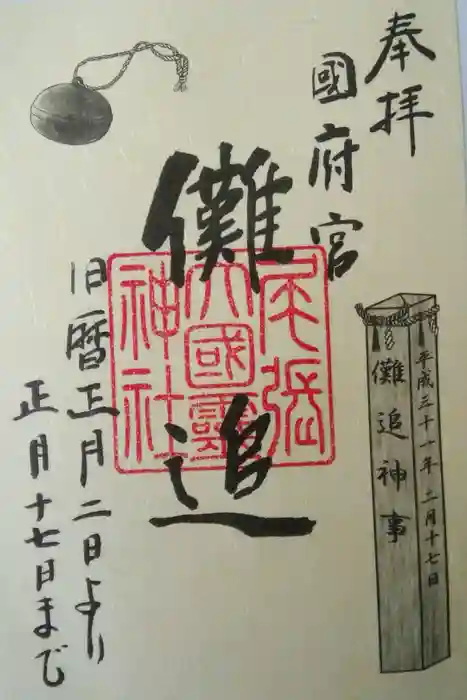 奉拝
國府宮
儺追
尾張
大國霊
神社
旧暦正月二日より
正月十七日まで
平成三十一年二月十七日
儺追神事